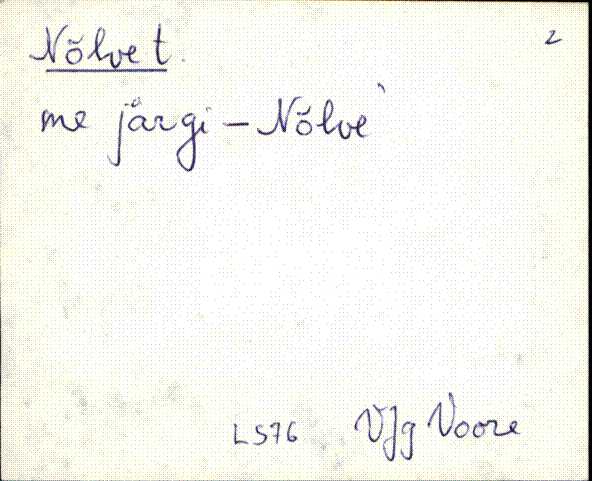 Nõlvet. 2
me järgi – Nõlve`
LS76 VJg Voore